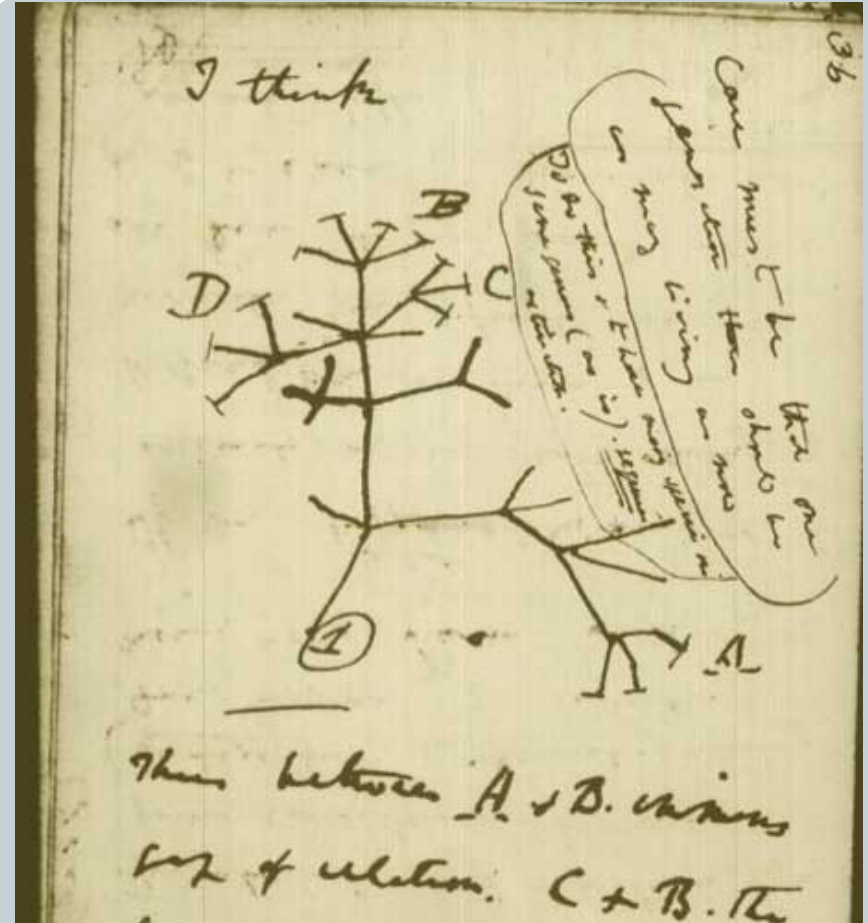 36
I think
Case must be that one
generation then should be
as many living as now
To do this & to have many species in
same genus (as is). requires
extinction.
B
C
D
1
A
Thus between A & B. immens
gap of relation. C & B. The